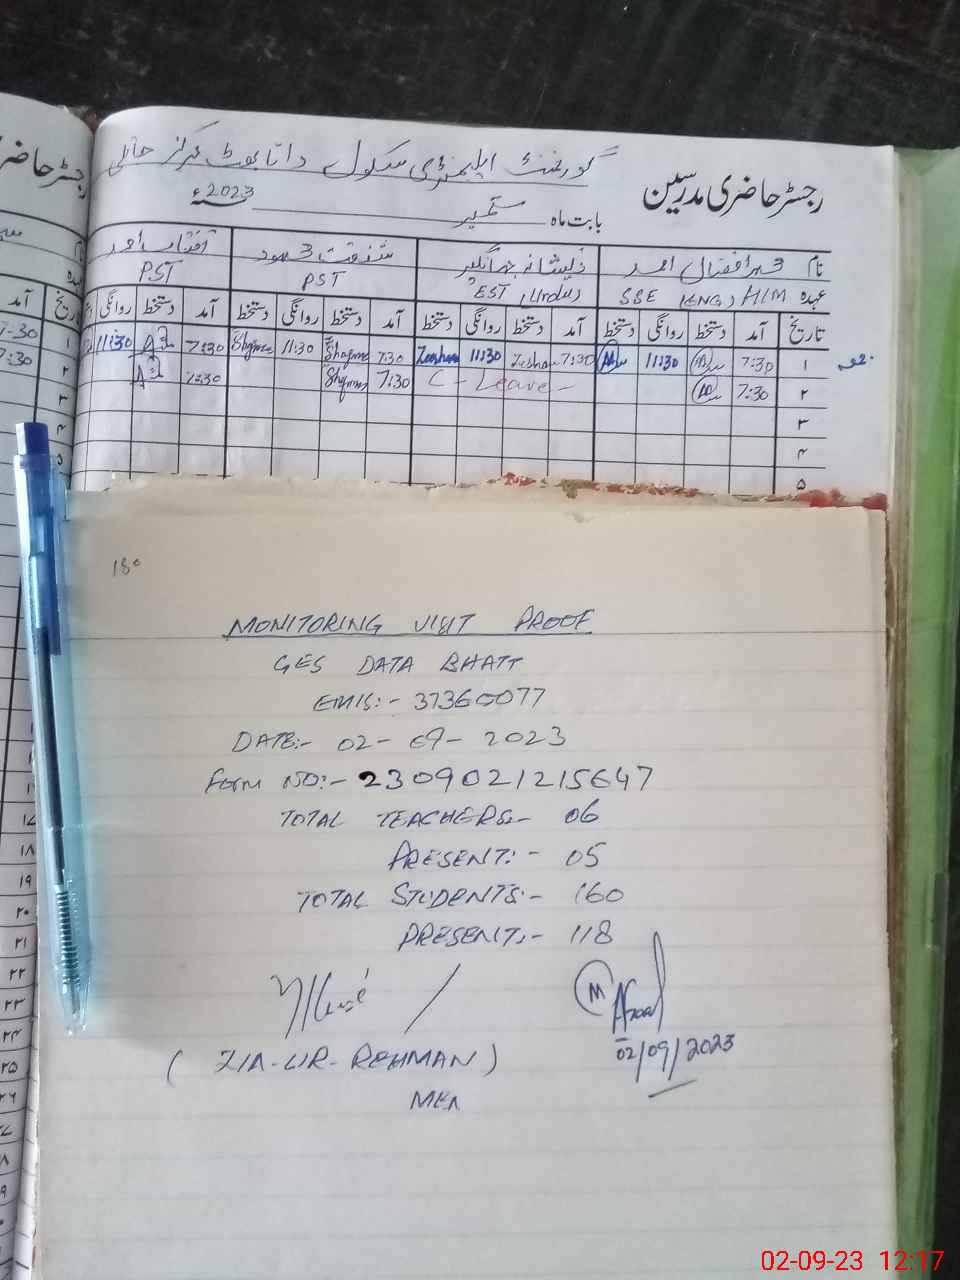 رجسٹر حاضری مدرسین
گورنمنٹ ایلیمنٹری سکول داتا بھٹ مرکز
بابت ماہ ستمبر 2023ء
نام احمد
شفقت
آفتاب احمد
عہدہ SSE (ENG) H/M
EST (Urdu)
PST
PST
تاریخ آمد دستخط روانگی دستخط آمد دستخط روانگی دستخط آمد دستخط روانگی دستخط آمد دستخط روانگی
۱ 7:30 11:30 7:30 11:30 7:30 11:30 7:30 11:30
۲ 7:30 C - Leave - 7:30 7:30
۳
۴
۵
MONITORING VISIT PROOF
GES DATA BHATT
EMIS:- 37360077
DATE:- 02-09-2023
Form NO:- 2309021215647
TOTAL TEACHERS:- 06
PRESENT:- 05
TOTAL STUDENTS:- 160
PRESENT:- 118
(ZIA-UR-REHMAN)
MEA
02/09/2023
02-09-23 12:17